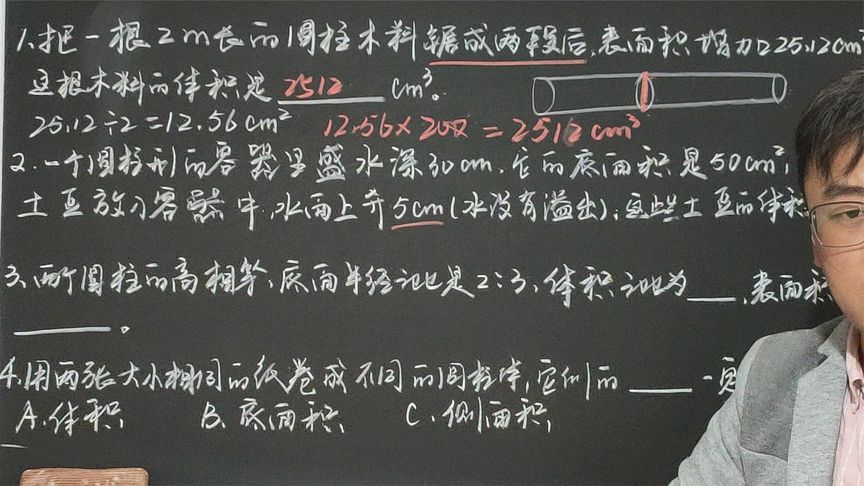 1.把一根2m长的圆柱木料锯成两段后,表面积增加25.12cm²
这根木料的体积是 2512 cm³。
25.12÷2=12.56cm² 12.56×200=2512cm³
2.一个圆柱形的容器里盛水深30cm,它的底面积是50cm²,
土豆放入容器中,水面上升5cm(水没有溢出),这些土豆的体积
3.两个圆柱的高相等,底面半径之比是2:3,体积之比为___,表面积
______。
4.用两张大小相同的纸卷成不同的圆柱体,它们的____一定
A.体积 B.底面积 C.侧面积